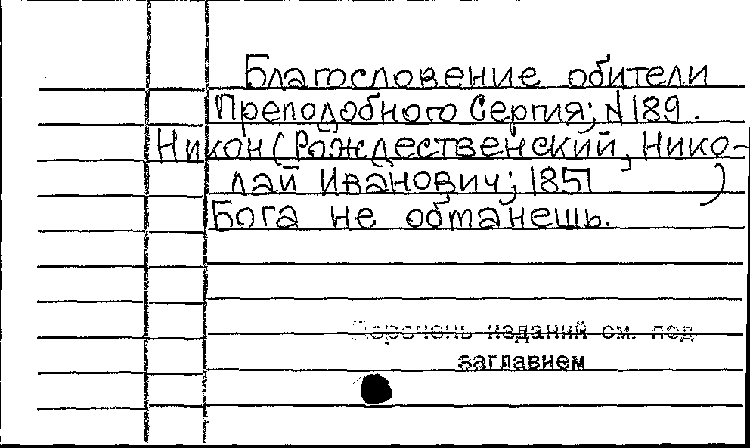 Благословение обители
Преподобного Сергия; N 189.
Никон (Рождественский, Нико-
лай Иванович; 1851 )
Бога не обманешь.
Перечень изданий см. под
заглавием